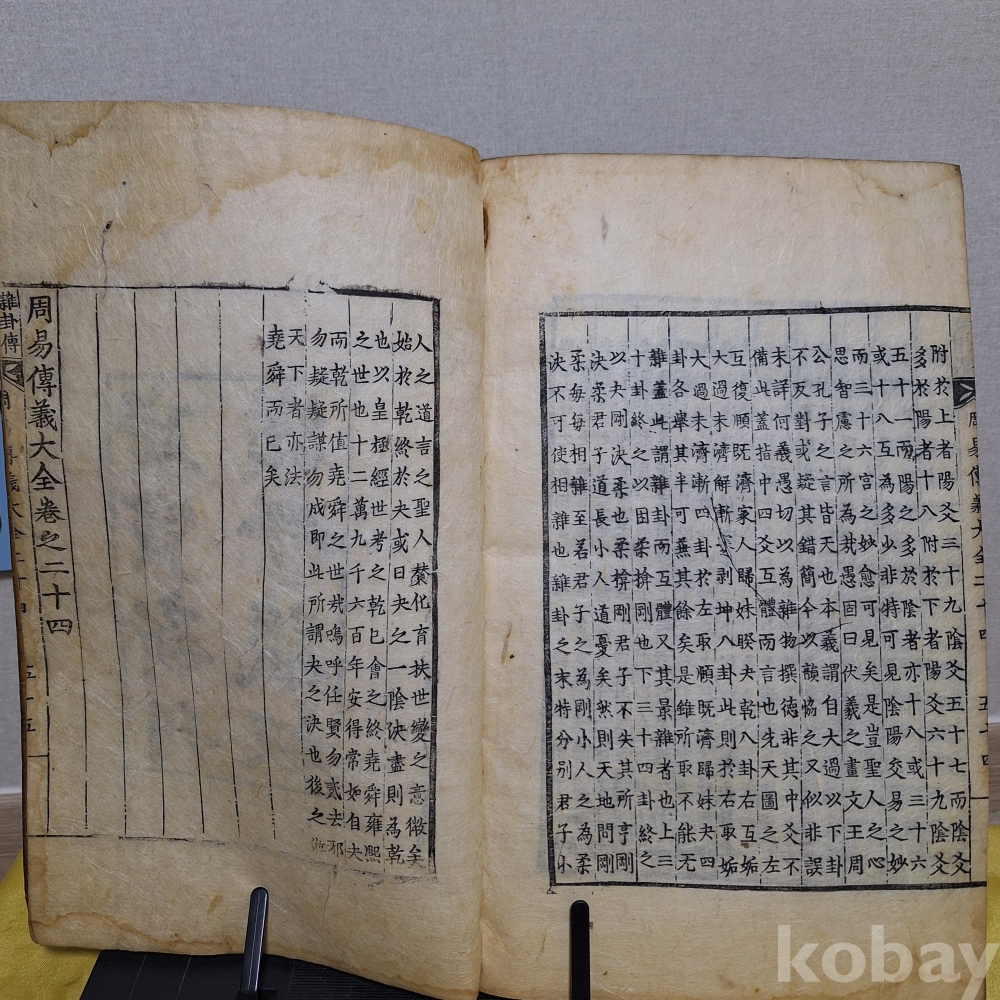 附於上者陽爻三十九陰爻五十七而陰爻
多於陽者十八附於下者陽爻六十九陰爻
五十一而陽之多於陰者亦十八或三十六
或十八互為多少非特可見陰陽交易之妙
而三十六宮之妙愈可見矣是豈聖人之心
思智慮之所為㢤愚固曰伏羲之畫文王周
公孔子之言皆天也本義謂自大過以下卦
不反對或疑其錯簡今以韻恊之又似非誤
未詳何義愚切以為雜物撰徳非其中爻不
備此蓋指中四爻互體而言也先天圖之左
互復頤既濟家人歸妹睽夬乾八卦右互姤
大過未濟解漸蹇剥坤八卦此則於右取姤
大過未濟漸四卦於左取頤既濟歸妹夬四
卦各舉其半可兼其餘矣是雖所取不能无
雜蓋此謂雜卦而互體又其最雜者也上三
十卦終之以困柔揜剛也下三十四卦終之
以夬剛决柔也柔揜剛君子不失其所亨剛
决柔君子道長小人道憂矣然則天地間剛
柔每每相雜至若君子之為剛小人之為柔
决不可使相雜也雜卦之末特分別君子小
周易傳義大全二十四 五十四
人之道言之聖人贊化育扶世變之意微矣
始於乾終於夬或曰夬之一陰决盡則為乾
也以皇極經世考之乾巳會之終堯舜雍熙
之世也十二萬九千六百年安得常如自夬
而乾所值堯舜之世㢤嗚呼任賢勿貳去邪
勿疑疑謀勿成即此所謂夬之决也後之
天下者亦法
堯舜而已矣
周易傳義大全卷之二十四
雜卦傳
五十五
kobay